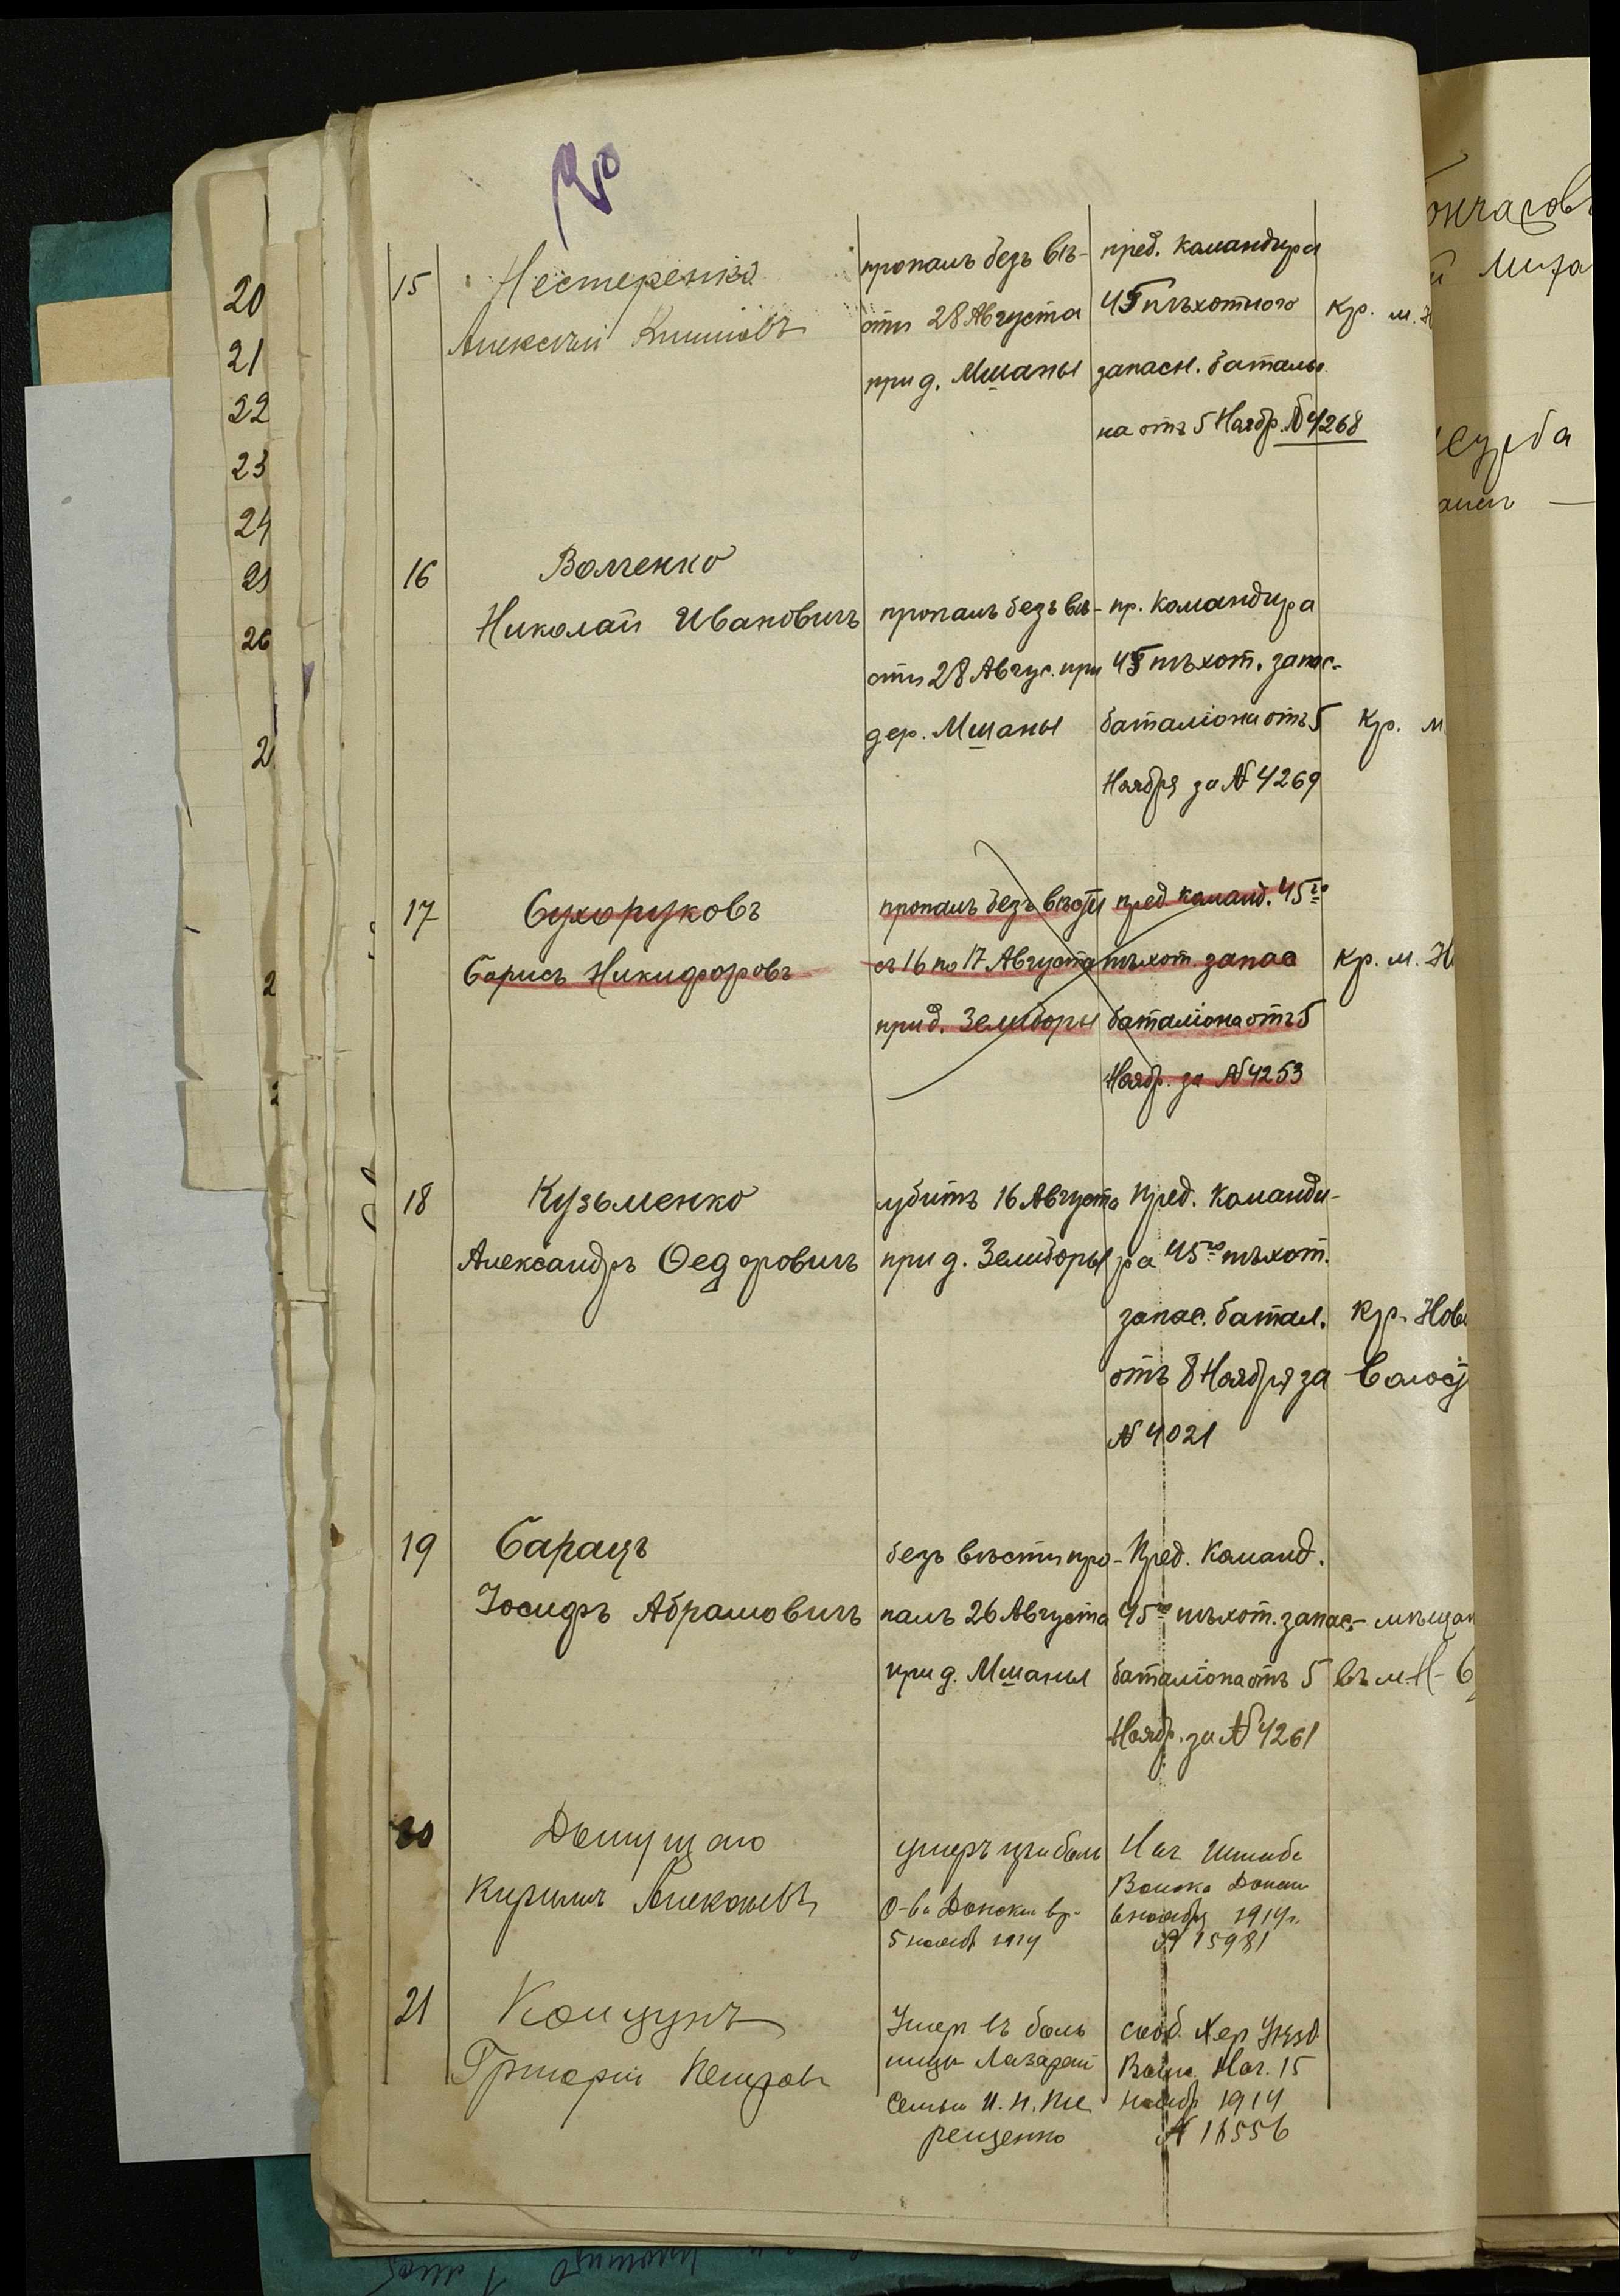 15
Нестеренко
Алексѣй
пропалъ безъ вѣ-
сти 28 Августа
при д. Мшаны
пред. командира
45 пѣхотного
запасн. баталіо
на отъ 5 Ноябр. № 4268
Кр. м. Н
16
Волченко
Николай Ивановичъ
пропалъ безъ вѣ-
сти 28 Авгус. при
дер. Мшаны
пр. командира
45 пѣхот. запас-
баталіона отъ 5
Ноября за № 4269
Кр. м
17
Сухоруковъ
Борисъ Никифоровъ
пропалъ безъ вѣсти
съ 16 по 17 Августа
при д. Земиборы
пред. команд. 45го
пѣхот. запас
баталіона отъ 5
Ноябр. за № 4253
Кр. м. Н
18
Кузьменко
Александръ Ѳедоровичъ
убитъ 16 Августа
при д. Земиборы
Пред. Команди-
ра 45го пѣхот.
запас. батал.
отъ 8 Ноября за
№ 4021
Кр. Нов
Волос
19
Барацъ
Іосифъ Абрамовичъ
безъ вѣсти про-
палъ 26 Августа
при д. Мшаны
Пред. Команд.
45го пѣхот. запас.-
баталіона отъ 5
Ноябр. за № 4261
мѣщан
въ м. Н-Б
20
Кириллъ
умеръ
5 1914
Нач. Штаба
Войска Донск
6 ноября 1914 г.
№ 15981
21
Григорій
Умер въ боль
ницы Лазарет
семьи И. Н.
рещенко
сооб. Хер Уѣзд
Воин. Нач. 15
ноябр 1914
20
21
22
23
24
25
26